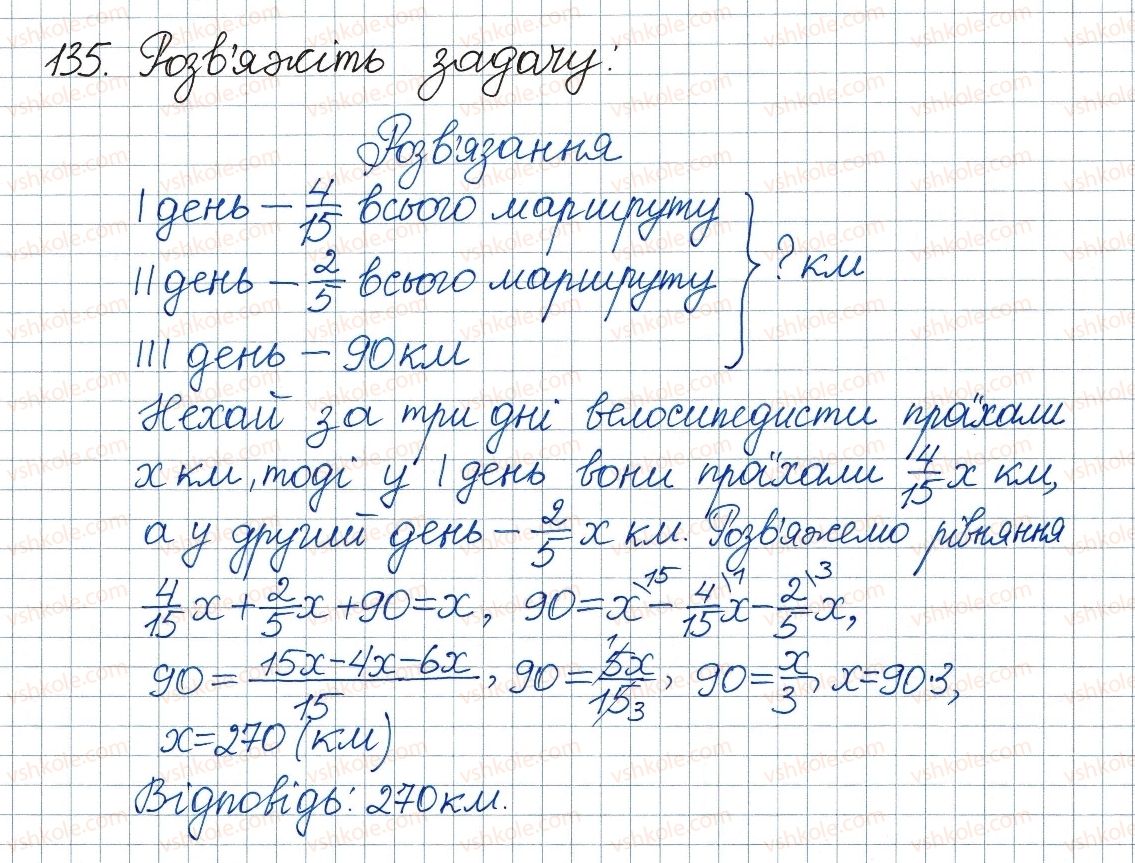 135. Розв'яжіть задачу:
Розв'язання
I день – 4/15 всього маршруту
II день – 2/5 всього маршруту } ? км
III день – 90 км
Нехай за три дні велосипедисти проїхали
x км, тоді у I день вони проїхали 4/15 x км,
а у другий день – 2/5 x км. Розв'яжемо рівняння
4/15 x + 2/5 x + 90 = x, 90 = x\15 – 4/15\1 x – 2/5\3 x,
90 = (15x – 4x – 6x)/15, 90 = 5x/15 1 3, 90 = x/3, x = 90·3,
x = 270 (км)
Відповідь: 270 км.